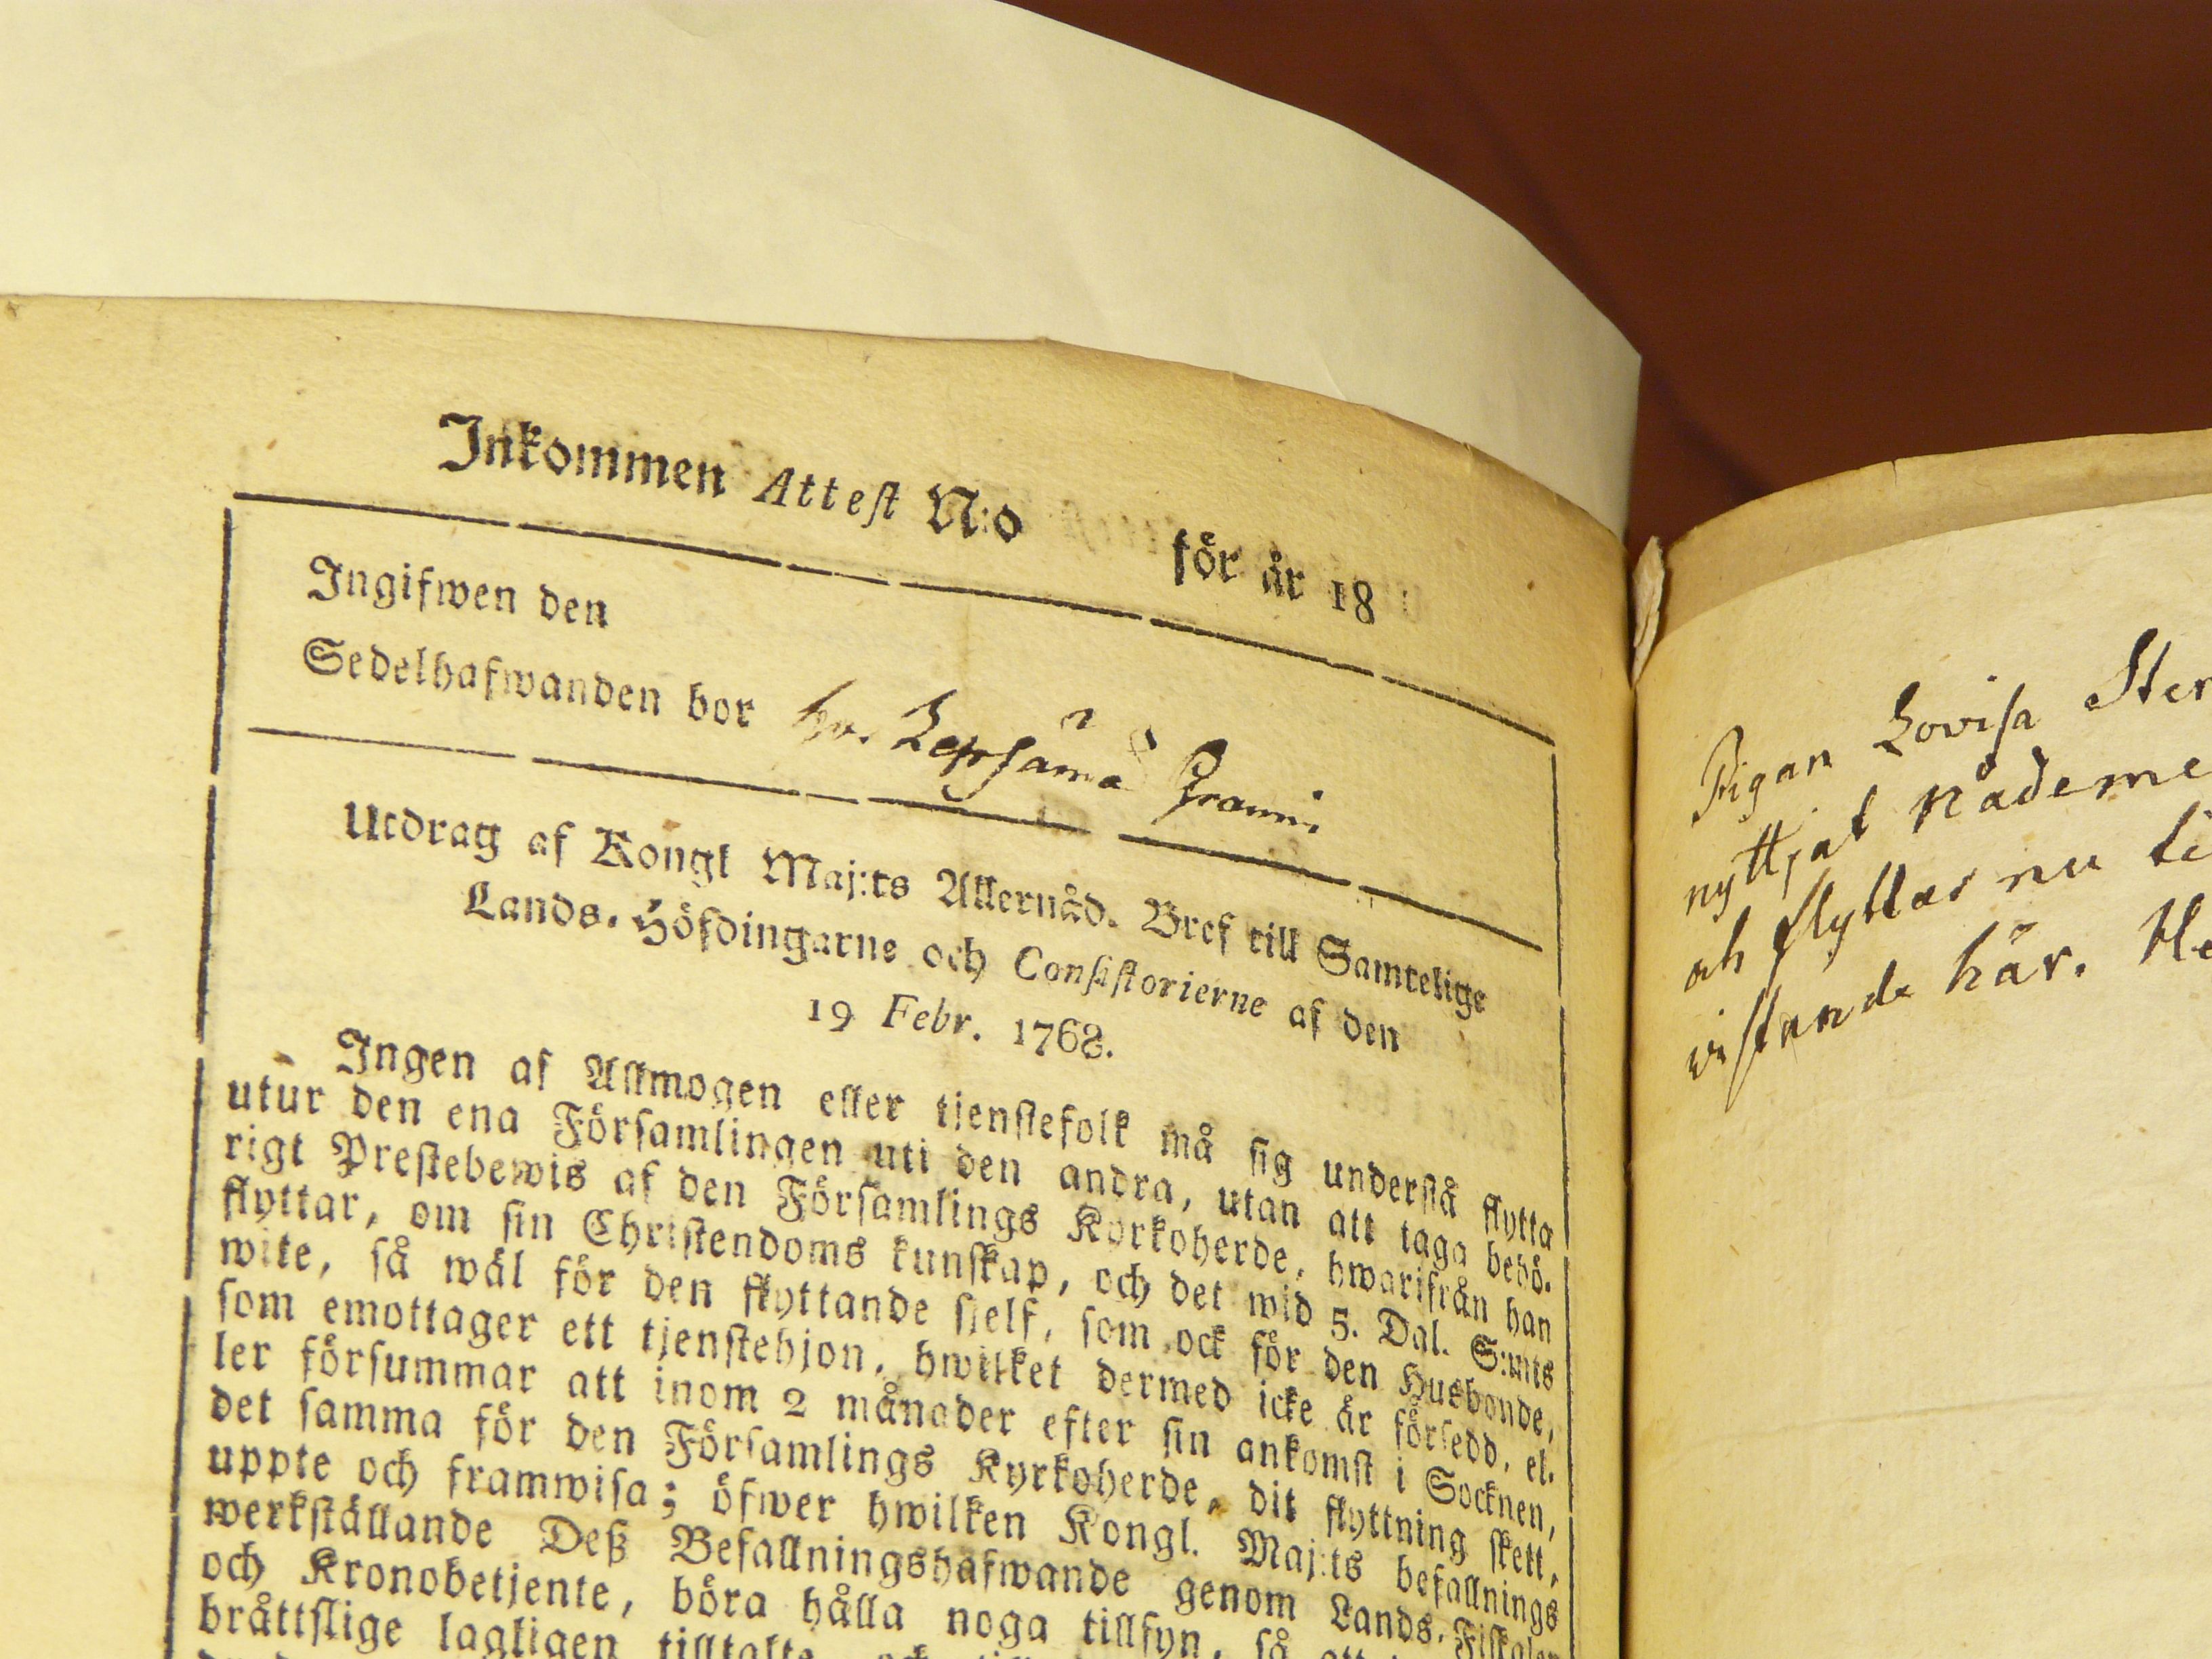 Inkommen Attest N:o för år 18
Ingifwen den
Sedelhafwanden bor hos
Utdrag af Kongl Maj:ts Allernåd. Bref till Samtelige
Lands-Höfdingarne och Consistorierne af den
19 Febr. 1768.
Ingen af Allmogen eller tjenstefolk må sig understå flytta
utur den ena Församlingen uti den andra, utan att taga behö-
rigt Prestebewis af den Församlings Kyrkoherde, hwarifrån han
flyttar, om sin Christendoms kunskap, och det wid 5. Dal. S:mts
wite, så wäl för den flyttande sjelf, som ock för den Husbonde,
som emottager ett tjenstehjon, hwilket dermed icke är försedd, el-
ler försummar att inom 2 månader efter sin ankomst i Socknen,
det samma för den Församlings Kyrkoherde, dit flyttning skett,
uppte och framwisa; öfwer hwilken Kongl. Maj:ts befallnings
werkställande Deß Befallningshafwande genom Lands-Fiskaler
och Kronobetjente, böra hålla noga tillsyn, så att
bråttslige lagligen tilltalte
Pigan Lovisa Ster
nyttjat Nådeme
och flyttar nu ti
vistande här. He